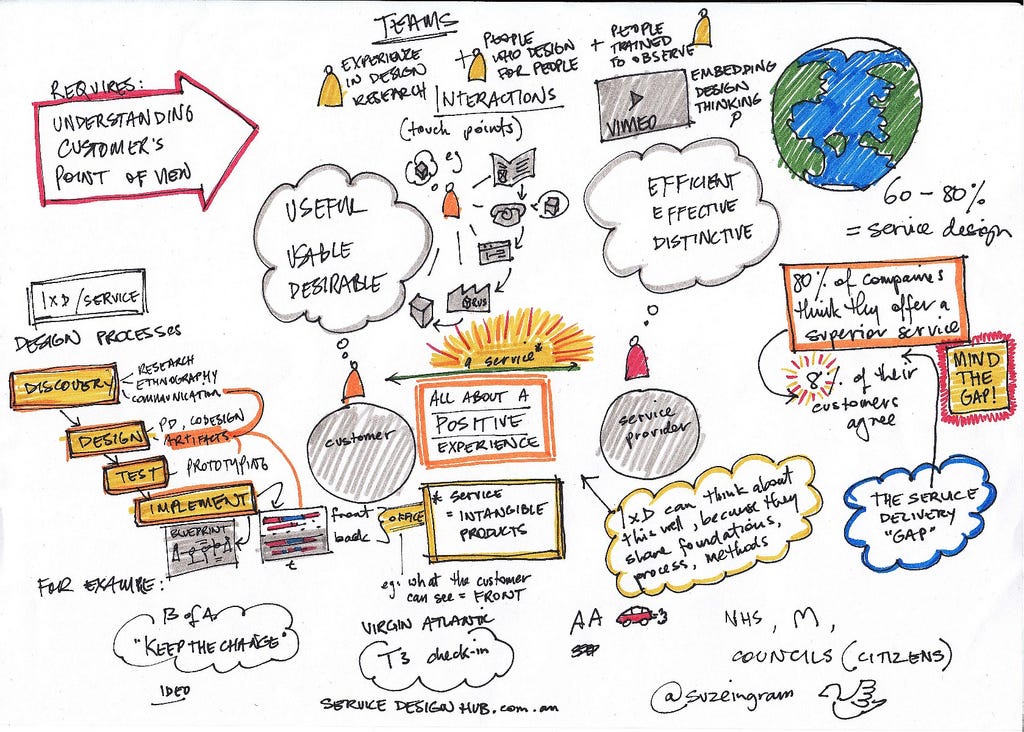 TEAMS
EXPERIENCE
IN DESIGN
RESEARCH
+ PEOPLE
WHO DESIGN
FOR PEOPLE
+ PEOPLE
TRAINED
TO OBSERVE
REQUIRES:
UNDERSTANDING
CUSTOMER'S
POINT OF VIEW
INTERACTIONS
(touch points)
eg
VIMEO
EMBEDDING
DESIGN
THINKING
USEFUL
USABLE
DESIRABLE
EFFICIENT
EFFECTIVE
DISTINCTIVE
60 - 80%
= service design
80% of companies
think they offer a
superior service
8% of their
customers
agree
MIND
THE
GAP!
THE SERVICE
DELIVERY
"GAP"
IXD/SERVICE
DESIGN PROCESSES
DISCOVERY
RESEARCH
ETHNOGRAPHY
COMMUNICATION
DESIGN
PD, CODESIGN
ARTIFACTS
TEST
PROTOTYPING
IMPLEMENT
BLUEPRINT
t
front
back
OFFICE
eg: what the customer
can see = FRONT
customer
a service*
ALL ABOUT A
POSITIVE
EXPERIENCE
service
provider
* SERVICE
= INTANGIBLE
PRODUCTS
IXD can think about
this well, because they
share foundations,
process, methods
FOR EXAMPLE:
B of A
"KEEP THE CHANGE"
IDEO
VIRGIN ATLANTIC
T3 check-in
AA
NHS, M,
COUNCILS (CITIZENS)
SERVICE DESIGN HUB.com.au
@suzeingram